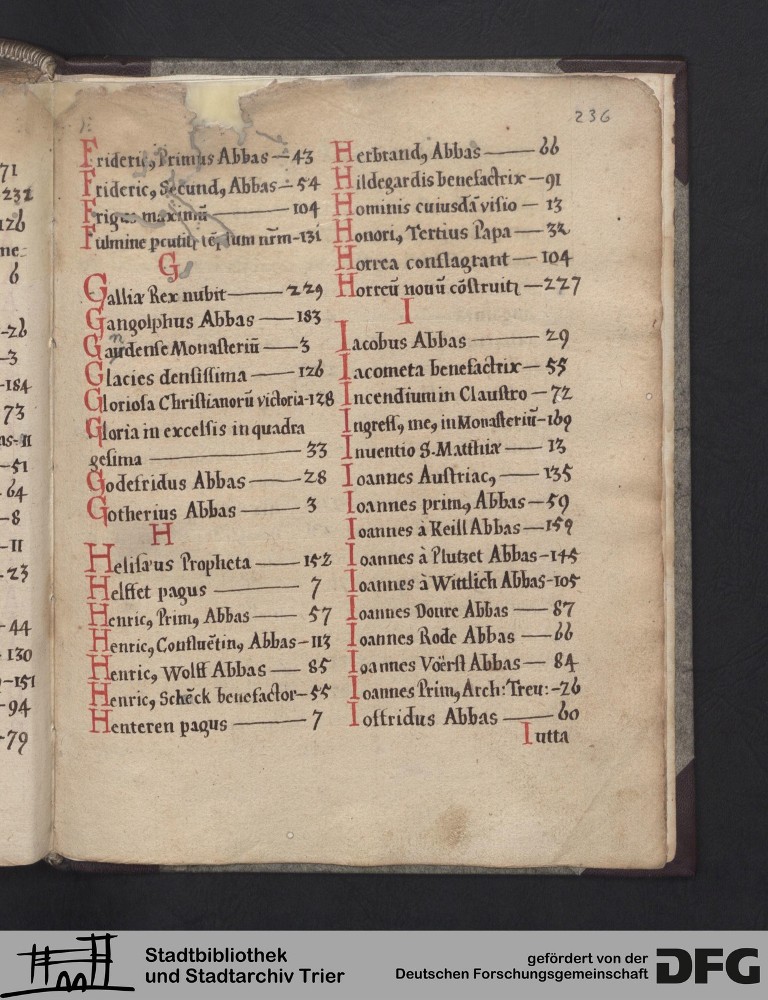 236
Frideric9 Primus Abbas — 43
Frideric9 Secund9 Abbas — 54
Frigus maximū — 104
Fulmine pcutit~ tēplum nr̄m - 131
G
Galliæ Rex nubit — 229
Gangolphus Abbas — 183
Gaudense Monasteriū — 3
Glacies densissima — 126
Gloriosa Christianorū victoria - 128
Gloria in excelsis in quadra
gesima — 33
Godefridus Abbas — 28
Gotherius Abbas — 3
H
Helisæus Propheta — 152
Helffet pagus — 7
Henric9 Prim9 Abbas — 57
Henric9 Confluētin9 Abbas - 113
Henric9 Wolff Abbas — 85
Henric9 Schēck benefactor - 55
Henteren pagus — 7
Herbrand9 Abbas — 66
Hildegardis benefactrix — 91
Hominis cuiusdā visio — 13
Honori9 Tertius Papa — 32
Horrea conflagrant — 104
Horreū nouū cōstruit~ — 227
I
Iacobus Abbas — 29
Iacometa benefactrix — 55
Incendium in Claustro — 72
Ingress9 me9 in Monasteriū - 169
Inuentio S. Matthiæ — 13
Ioannes Austriac9 — 135
Ioannes prim9 Abbas — 59
Ioannes à Keill Abbas — 159
Ioannes à Plutzet Abbas - 145
Ioannes à Wittlich Abbas - 105
Ioannes Donre Abbas — 87
Ioannes Rode Abbas — 66
Ioannes Voërst Abbas — 84
Ioannes Prim9 Arch: Treu: - 26
Ioffridus Abbas — 60
Iutta
71
232
126
ne:
6
-26
-3
-184
73
as-11
-51
64
-8
-11
-23
-44
130
-151
-94
-79
Stadtbibliothek
und Stadtarchiv Trier
gefördert von der
Deutschen Forschungsgemeinschaft
DFG